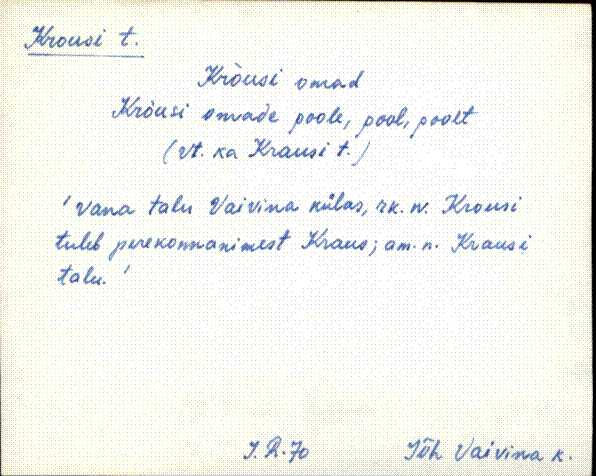 Krousi t.
Kròusi omad
Kròusi omade poole, pool, poolt
(vt. ka Krausi t.)
'vana talu Vaivina külas, rk. n. Krousi
tuleb perekonnanimest Kraus; am. n. Krausi
talu.'
J. R. 70 Jõh Vaivina k.